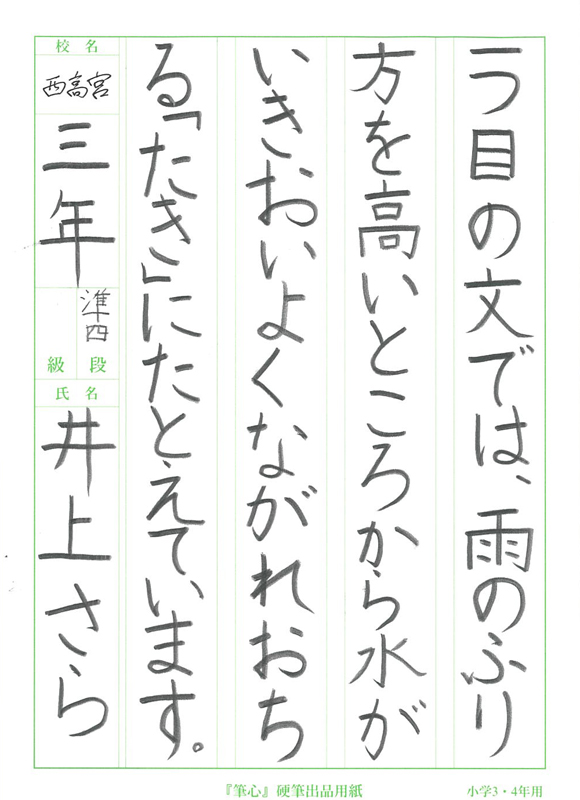 一つ目の文では、雨のふり
方を高いところから水が
いきおいよくながれおち
る「たき」にたとえています。
校名
西高宮
三年
準四
級 段
氏名
井上さら
『筆心』硬筆出品用紙
小学3・4年用